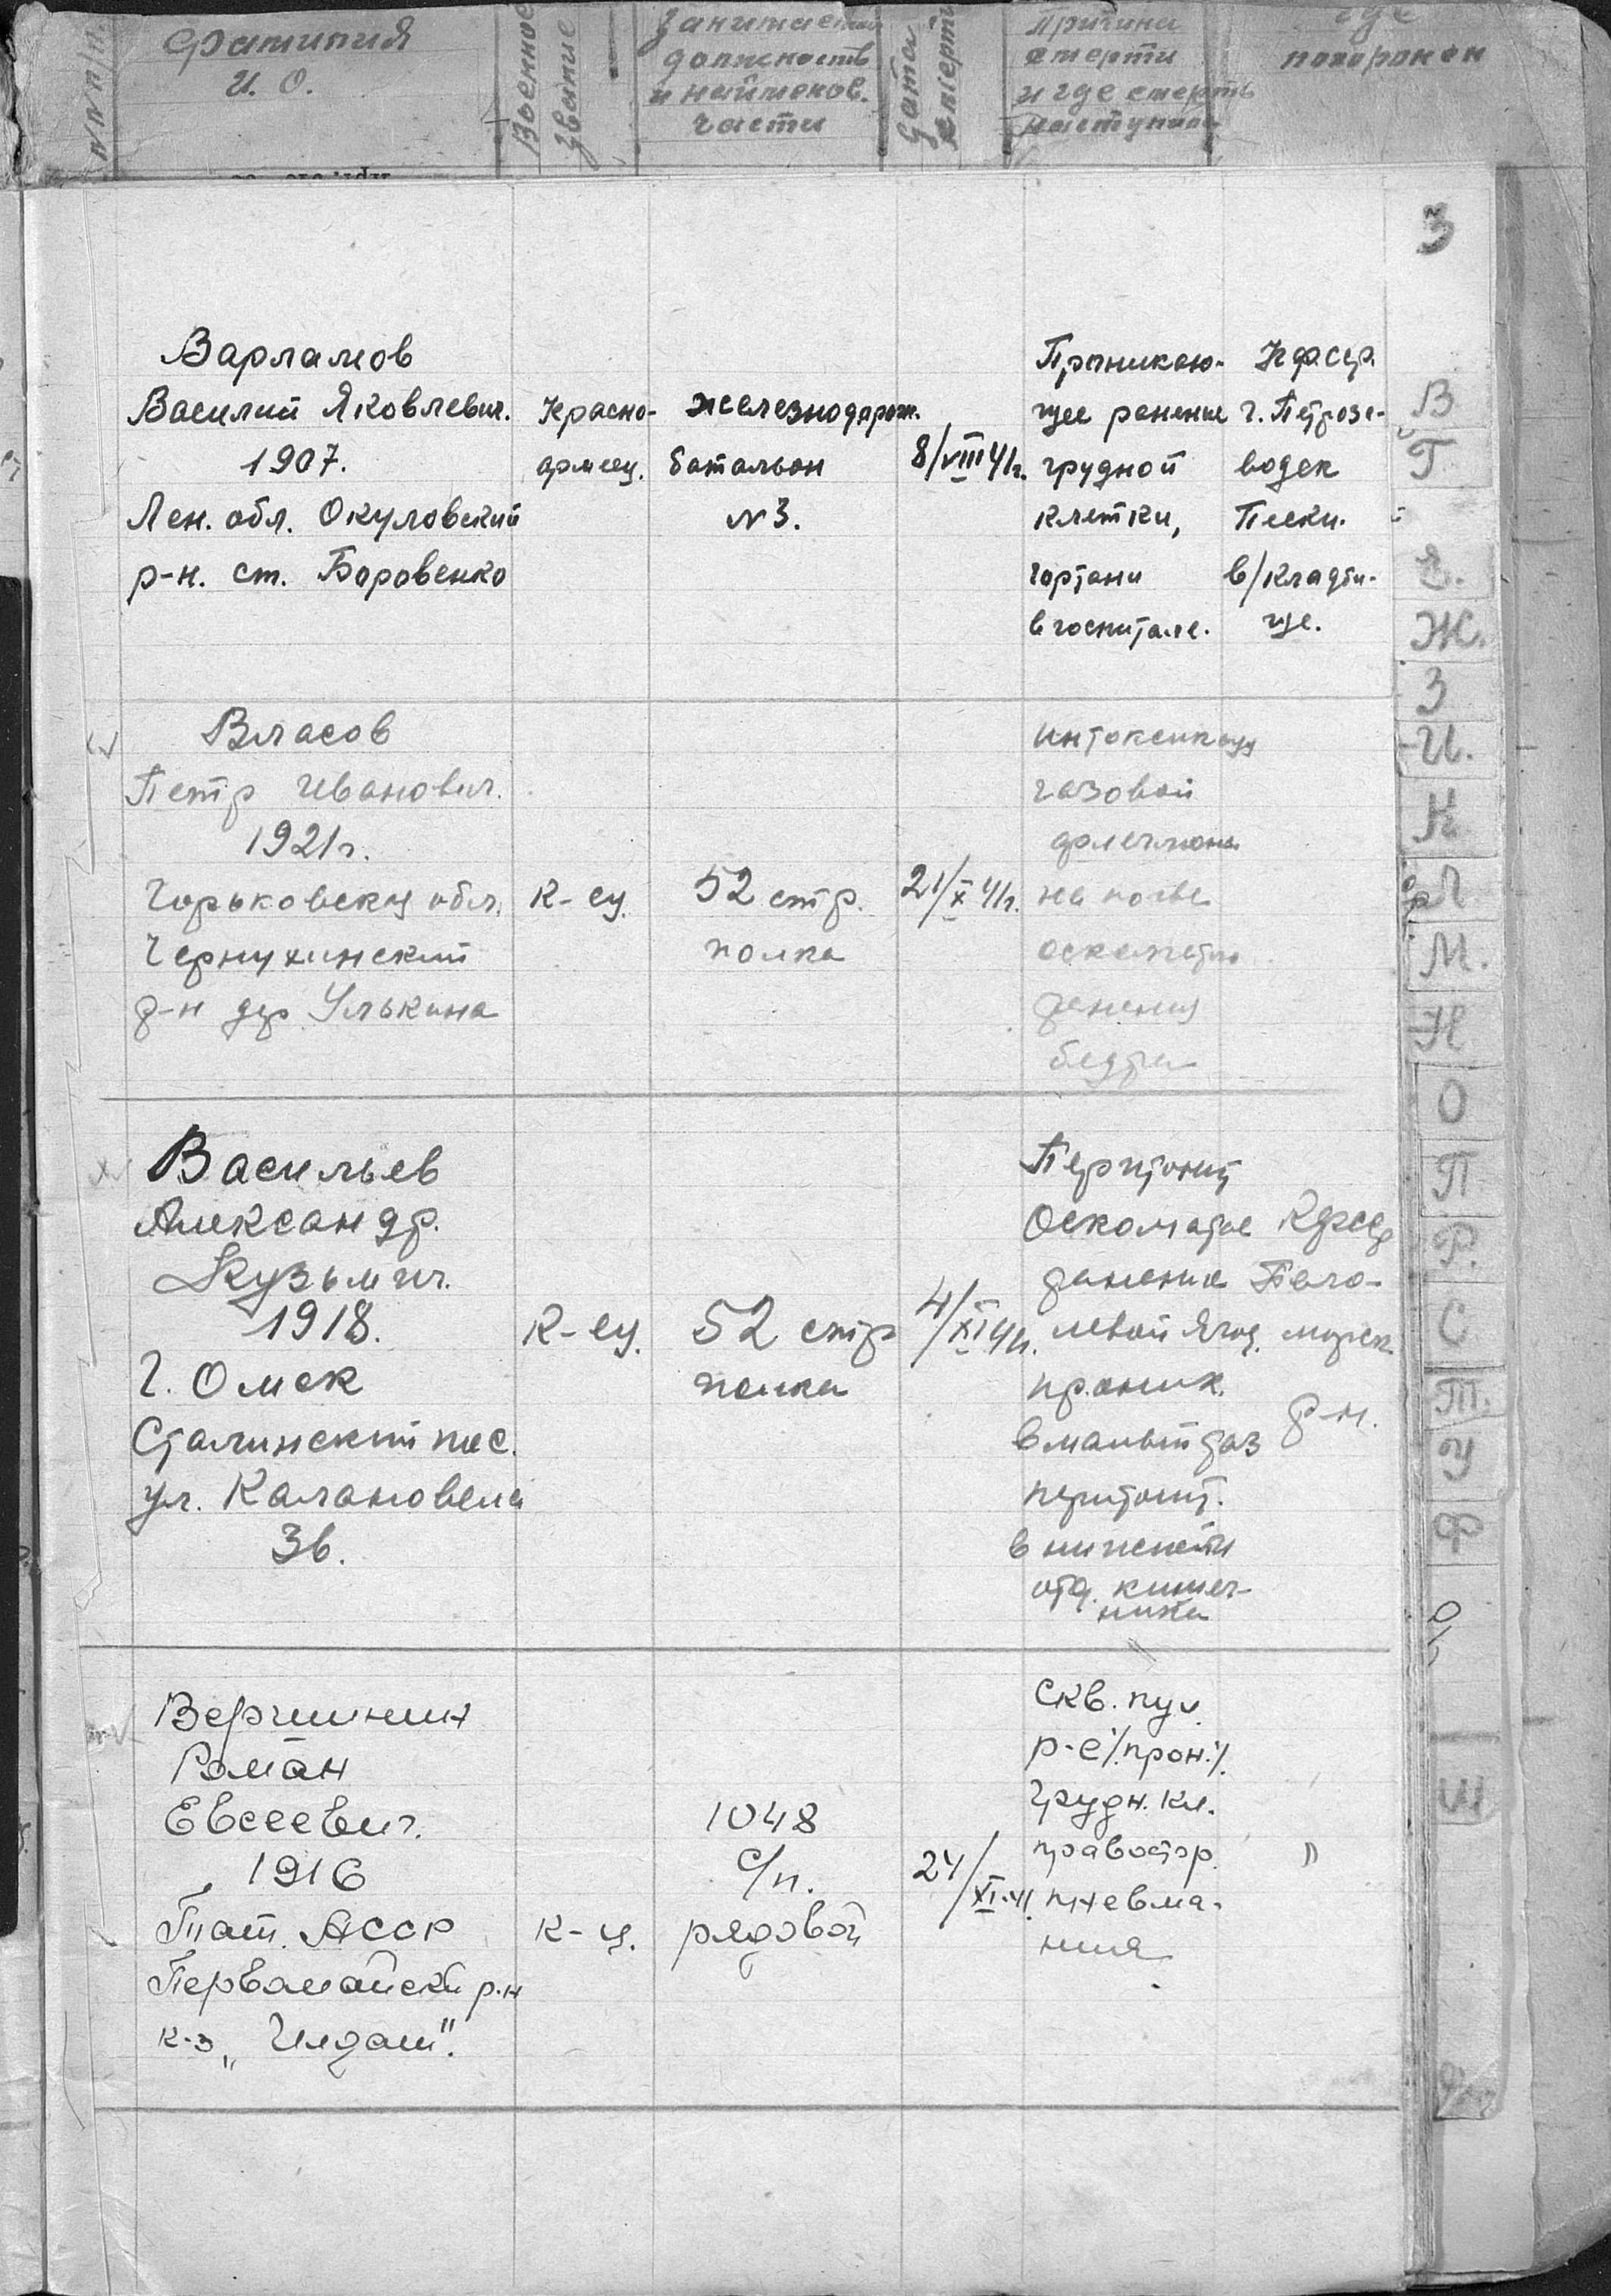 №№ п/п.
Фамилия
И. О.
Военное
звание
Занимаемая
должность
и наименов.
части
Дата
смерти
Причина
смерти
и где смерть
наступила
где
похоронен
3
Варламов
Василий Яковлевич.
1907.
Лен. обл. Окуловский
р-н. ст. Боровенко
Красно-
армеец.
железнодорож.
батальон
№ 3.
8/VIII 41г.
Проникаю-
щее ранение
грудной
клетки,
гортани
в госпитале.
КФССР.
г. Петроза-
водск
Пески.
в/кладби-
ще.
Власов
Петр Иванович.
1921г.
Горьковску обл.
Чернухинский
р-н дер Улькина
К-ец.
52 стр.
полка
21/X 41г.
интоксикац
газовой
флегмона
на почве
осколочно
ранения
бедра
Васильев
Александр.
Кузьмич.
1918.
г. Омск
Сталинский пос.
ул.
3в.
К-ец.
52 стр
полка
4/XI 41г.
Перитонит
Осколочное
ранение
левой ягод.
проник.
в малый таз
перитонит.
в нижней
отд. кишеч-
ника
КФССР
Бело-
морск.
р-н.
Вершинин
Роман
Евсеевич.
1916
Тат. АССР
Первомайски р-н
к-з „Илдаш".
К-ц.
1048
с/п.
рядовой
24/XI-41
Скв. пул.
р-е /.прон./.
грудн. кл.
правостор.
пневмо-
ния
"
В
Г
Е.
Ж.
З
И.
К
Л
М.
Н
О
П
Р.
С
Т.
У
Ф
Ш